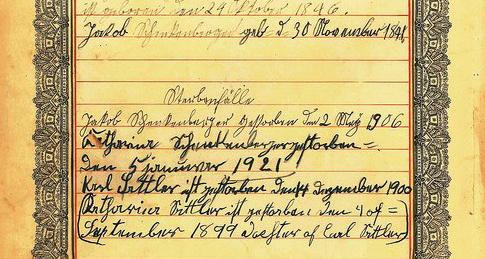 ist geboren den 29 Oktober 1896.
Jakob Schenkenberger geb d 30 November 1841
Sterbefälle
Jakob Schenkenberger gestorben den 2 May 1906
Katharina Schenkenberger gestorben =
Den 5 januwar 1921
Karl Sattler ist gestorben den 4 Dezember 1900
(Katharina Sattler ist gestorben den 4 of =
September 1899 dochter of Carl Sattler)